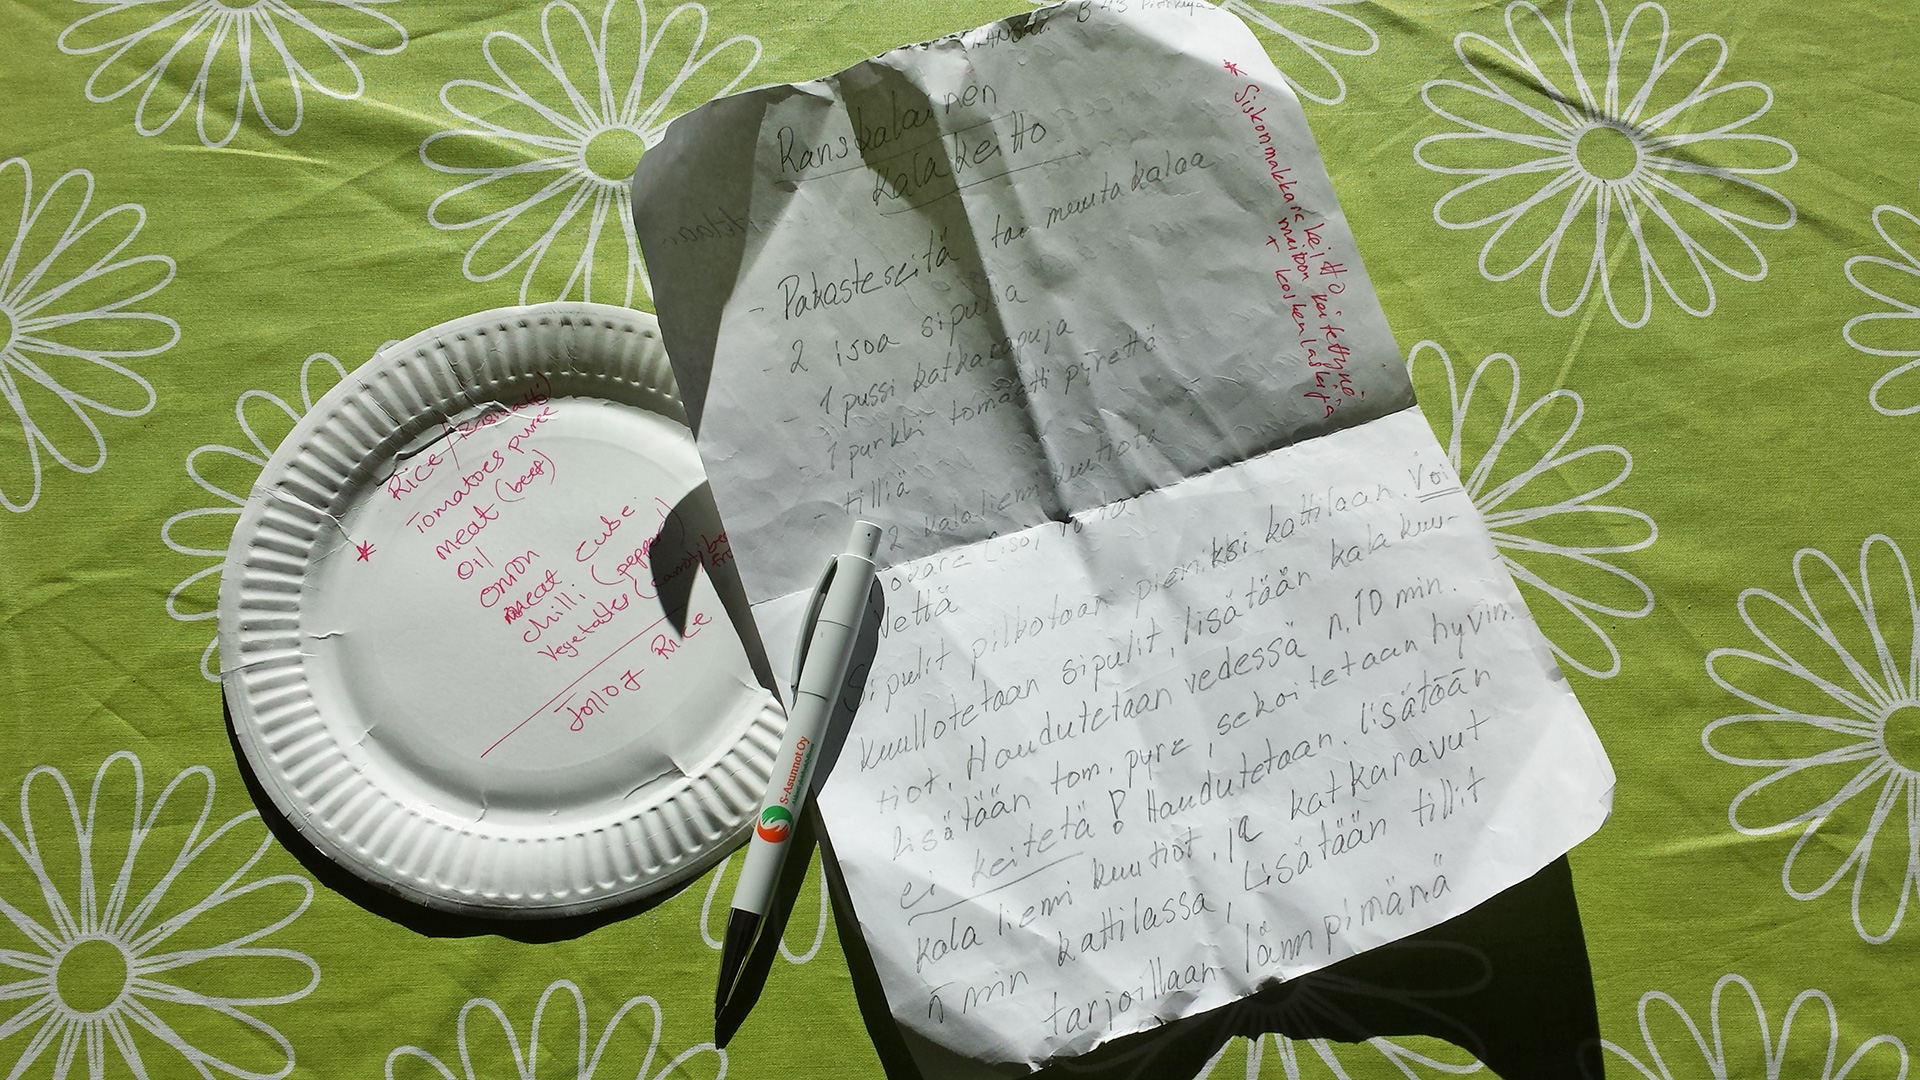 Rice / (Basmatti)
Tomatoes puree
meat (beef)
oil
onion
meat cube
chilli (pepper)
Vegetables (carrots/
Jollof Rice
S-Asunnot Oy
B 43
Ranskalainen
kala keitto
- Pakasteseitä tai muuta kalaa
- 2 isoa sipulia
- 1 pussi katkarapuja
- 1 purkki tomaatti pyrettä
- tilliä
2 kalaliemi kuutiota
(iso) voita
Vettä
Sipulit pilkotaan pieniksi kattilaan. Voi
kuullotetaan sipulit, lisätään kala kuu-
tiot. Haudutetaan vedessä n. 10 min.
Lisätään tom. pyre, sekoitetaan hyvin.
ei keitetä! Haudutetaan. lisätään
kala liemi kuutiot. ja katkaravut
5 min kattilassa, Lisätään tillit
tarjoillaan lämpimänä
* Siskonmakkara keitto keitettynä
maitoon
+ koskenlaskija